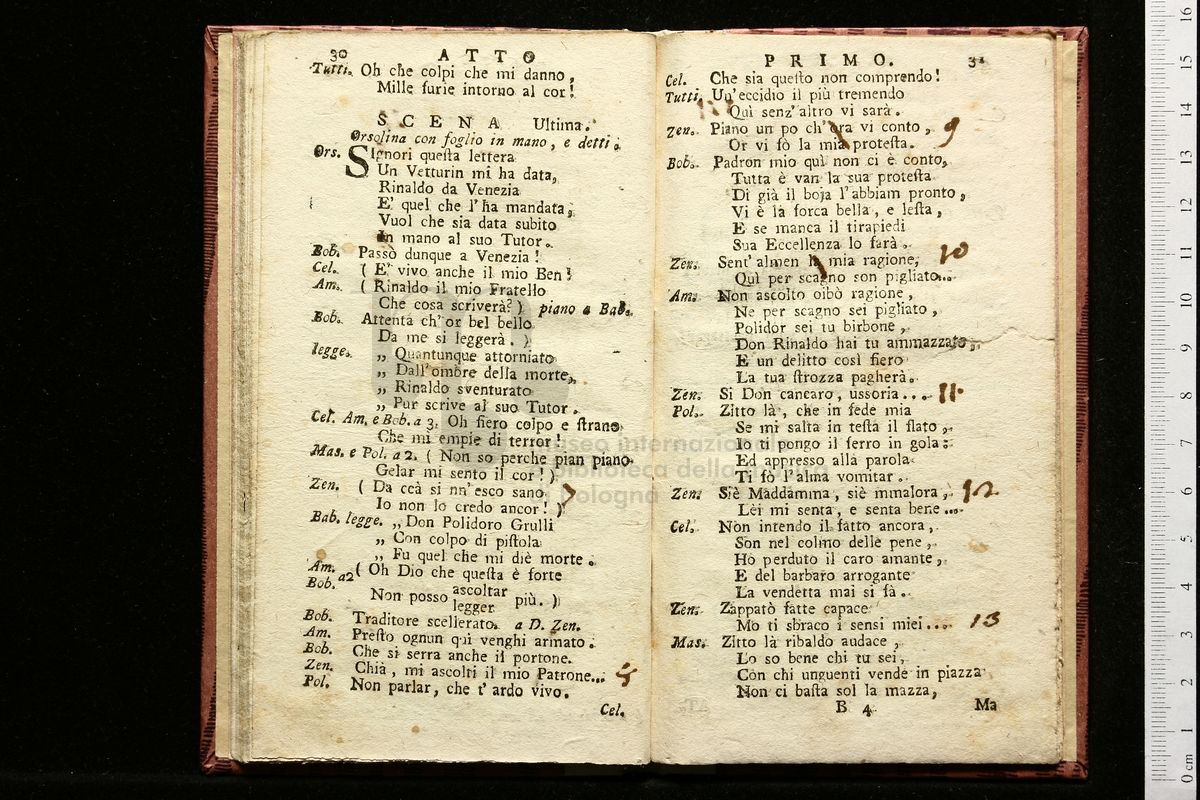 30 ATTO
Tutti. Oh che colpi che mi danno,
Mille furie intorno al cor!
SCENA Ultima.
Orsolina con foglio in mano, e detti.
Ors. SIgnori queſta lettera
Un Vetturin mi ha data,
Rinaldo da Venezia
E' quel che l'ha mandata,
Vuol che sia data subito
In mano al suo Tutor.
Bob. Passò dunque a Venezia!
Cel. ( E' vivo anche il mio Ben!
Am. ( Rinaldo il mio Fratello
Che cosa scriverà? ) piano a Bob.
Bob. Attenta ch'or bel bello
Da me si leggerà. )
legge. „ Quantunque attorniato
„ Dall'ombre della morte,
„ Rinaldo sventurato
„ Pur scrive al suo Tutor.
Cel. Am. e Bob. a 3. Oh fiero colpo e ſtrano
Che mi empie di terror!
Mas. e Pol. a 2. ( Non so perche pian piano
Gelar mi sento il cor! )
Zen. ( Da ccà si nn'esco sano 7
Io non lo credo ancor! )
Bab. legge. „ Don Polidoro Grulli
„ Con colpo di piſtola
„ Fu quel che mi diè morte.
Am. Bob. a2 ( Oh Dio che queſta è forte
Non posso ascoltar legger più. )
Bob. Traditore scellerato. a D. Zen.
Am. Preſto ognun qui venghi armato.
Bob. Che si serra anche il portone.
Zen. Chià, mi ascolti il mio Patrone...
Pol. Non parlar, che t'ardo vivo.
Cel.
PRIMO. 31
Cel. Che sia queſto non comprendo!
Tutti. Un'eccidio il più tremendo
Quì senz'altro vi sarà.
Zen. Piano un po ch'ora vi conto, 9
Or vi fò la mia proteſta.
Bob. Padron mio quì non ci è conto,
Tutta è van la sua proteſta
Di già il boja l'abbiam pronto,
Vi è la forca bella, e leſta,
E se manca il tirapiedi
Sua Eccellenza lo farà.
Zen. Sent'almen la mia ragione, 10
Quì per scagno son pigliato...
Am. Non ascolto oibò ragione,
Ne per scagno sei pigliato,
Polidor sei tu birbone,
Don Rinaldo hai tu ammazzato,
E un delitto così fiero
La tua ſtrozza pagherà.
Zen. Si Don cancaro, ussoria... 11
Pol. Zitto là, che in fede mia
Se mi salta in teſta il flato,
Io ti pongo il ferro in gola:
Ed appresso alla parola
Ti fò l'alma vomitar.
Zen. Siè Maddamma, siè mmalora, 12
Lei mi senta, e senta bene...
Cel. Non intendo il fatto ancora,
Son nel colmo delle pene,
Hò perduto il caro amante,
E del barbaro arrogante
La vendetta mai si fà.
Zen. Zappatò fatte capace
Mo ti sbraco i sensi miei... 13
Mas. Zitto là ribaldo audace,
Lo so bene chi tu sei,
Con chi unguenti vende in piazza
Non ci baſta sol la mazza,
B 4 Ma